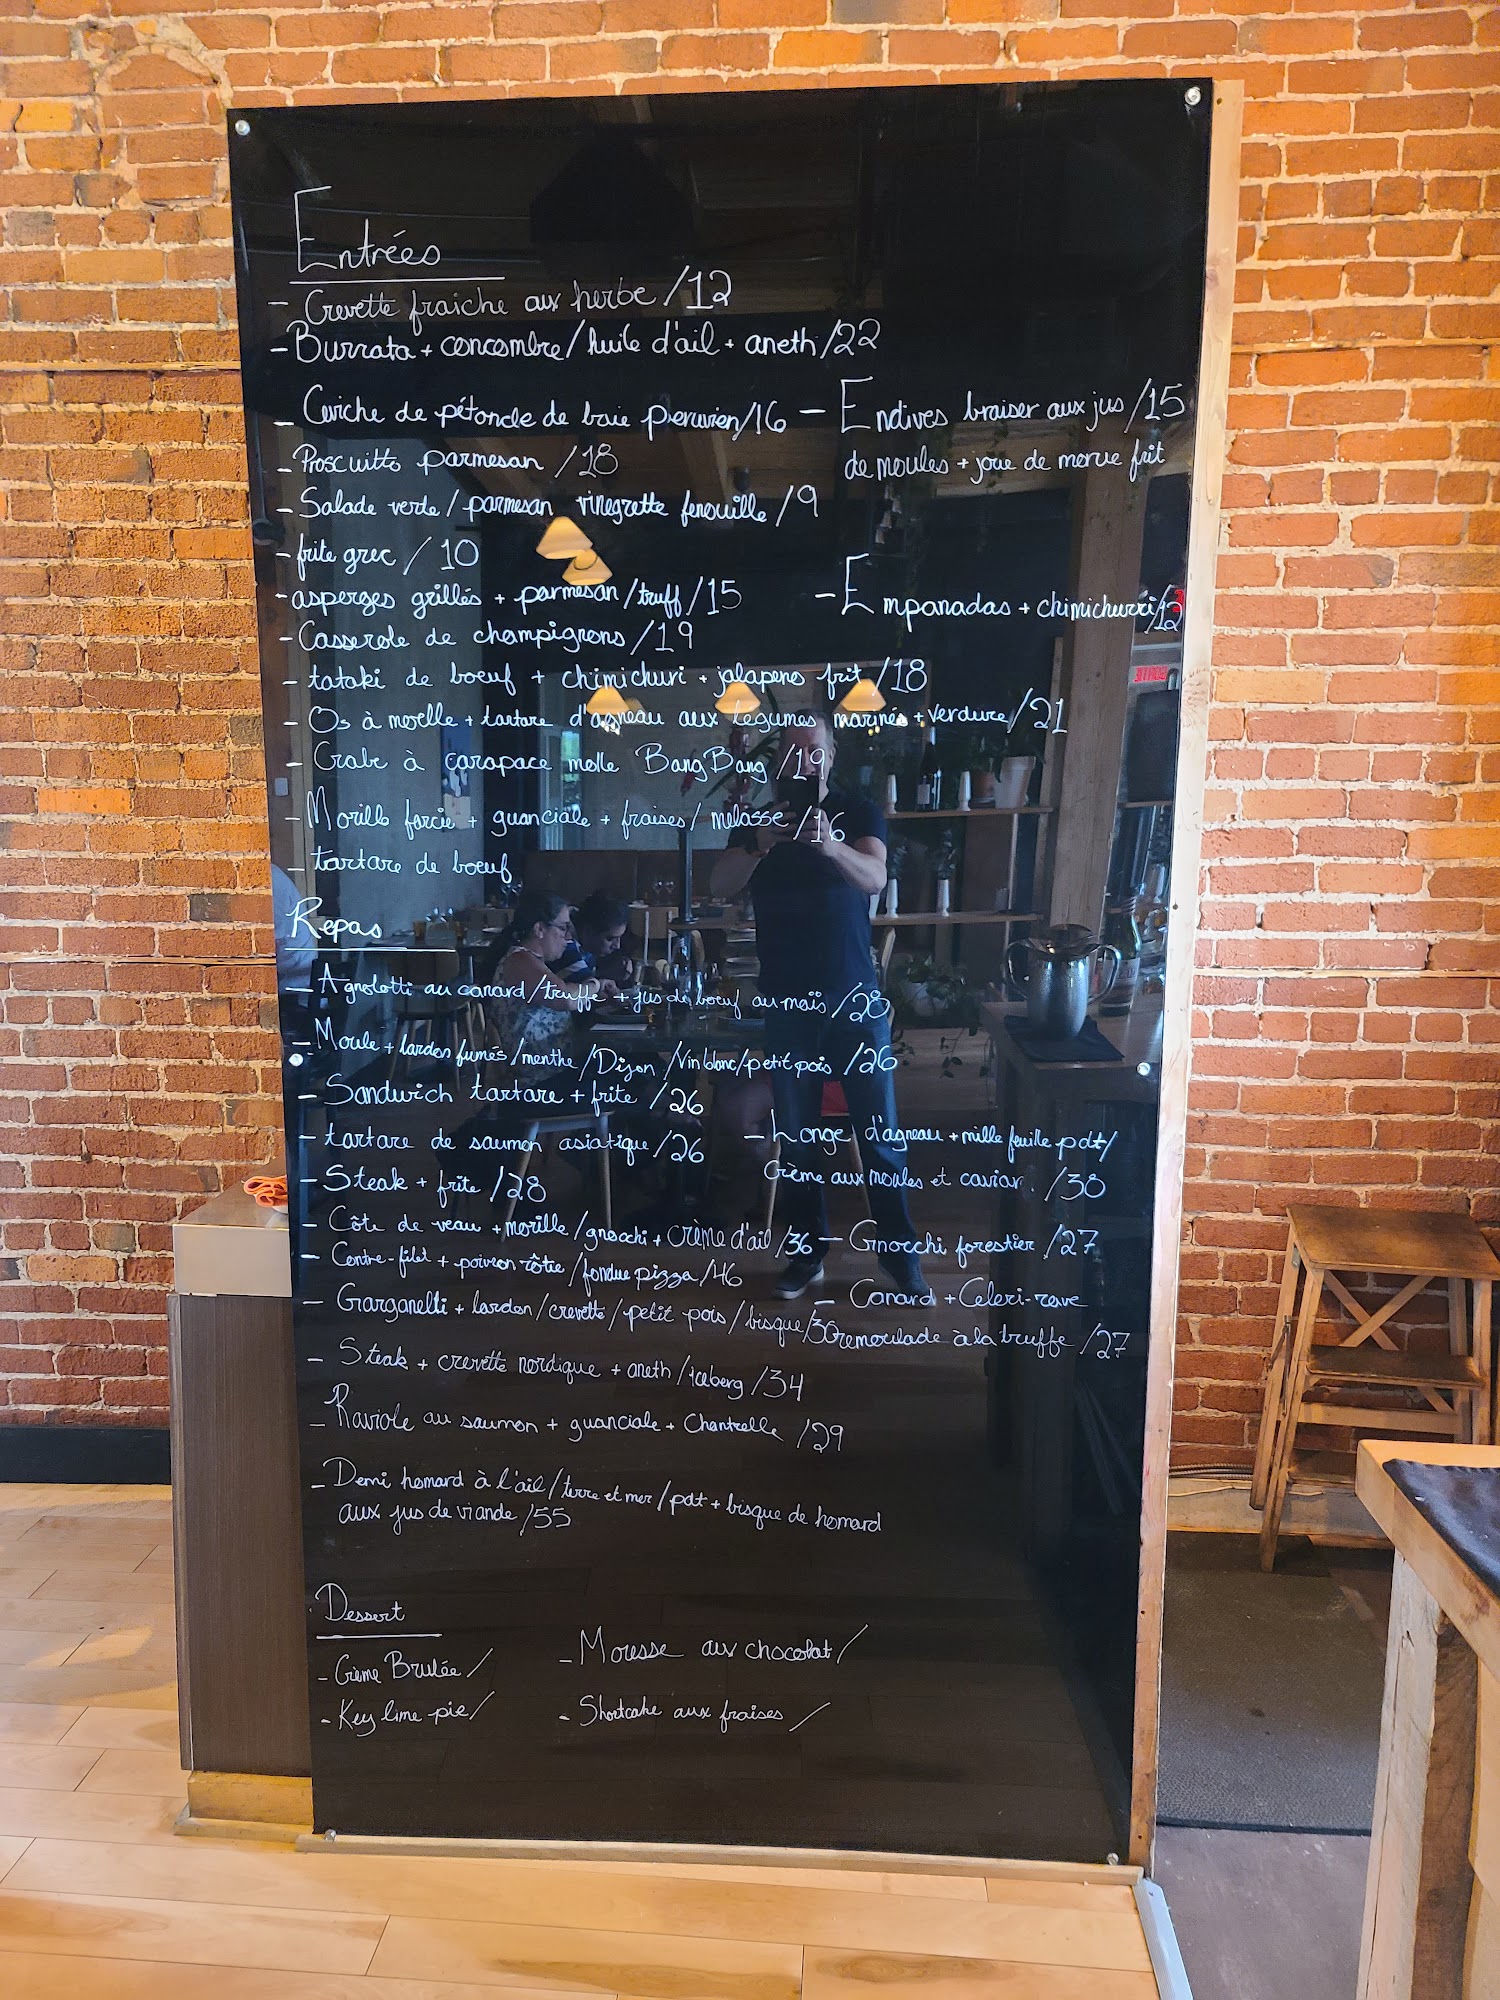 Entrées
- Crevette fraiche aux herbe /12
- Burrata + concombre / huile d'ail + aneth /22
- Ceviche de pétoncle de baie peruvien /16
- Endives braiser aux jus /15
de moules + joue de morue frit
- Proscuitto parmesan /18
- Salade verte / parmesan vinegrette fenouille /9
- frite grec / 10
- asperges grillés + parmesan / truff /15
- Empanadas + chimichurri /12
- Casserole de champignons /19
- tataki de boeuf + chimichuri + jalapeno frit /18
- Os à moelle + tartare d'agneau aux légumes marinés + verdure /21
- Crabe à carapace molle Bang Bang /19
- Morille farcie + guanciale + fraises / melasse /16
- tartare de boeuf
Repas
- Agnolotti au canard / truffe + jus de boeuf au maïs /28
- Moule + lardon fumés / menthe / Dijon / Vin blanc / petit pois /26
- Sandwich tartare + frite /26
- tartare de saumon asiatique /26
- Longe d'agneau + mille feuille pdt /
Crème aux moules et caviar. /38
- Steak + frite /28
- Côte de veau + morille / gnocchi + crème d'ail /36
- Gnocchi forestier /27
- Contre-filet + poivron rôtie / fondue pizza /46
- Canard + Celeri-rave
remoulade à la truffe /27
- Garganelli + lardon / crevette / petit pois / bisque /30
- Steak + crevette nordique + aneth / iceberg /34
- Raviole au saumon + guanciale + Chantrelle /29
- Demi homard à l'ail / terre et mer / pdt + bisque de homard
aux jus de viande /55
Dessert
- Crème Brulée /
- Mousse aux chocolat /
- Key lime pie /
- Shortcake aux fraises /